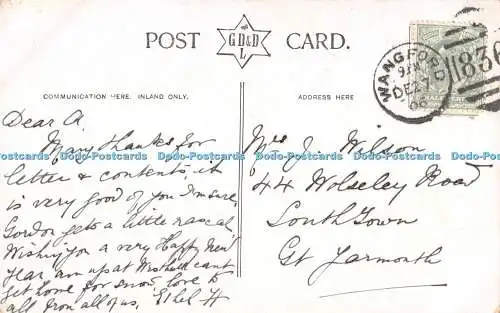 POST CARD.
G D & D
L
COMMUNICATION HERE. INLAND ONLY.
ADDRESS HERE
WANGFORD
DE 27
08
836
Dear A
Many thanks for
letter & contents, it
is very good of you I'm sure,
Gordon gets a little rascal,
Wishing you a very Happy New
Year am up at Westhall cant
get home for snow, love to
all from all of us, Ethel H
Mrs J. Wilson
44 Wolseley Road
South Town
Gt Yarmouth
Dodo-Postcards Dodo-Postcards Dodo-Postcards Dodo-Postcards Dodo-Postcards